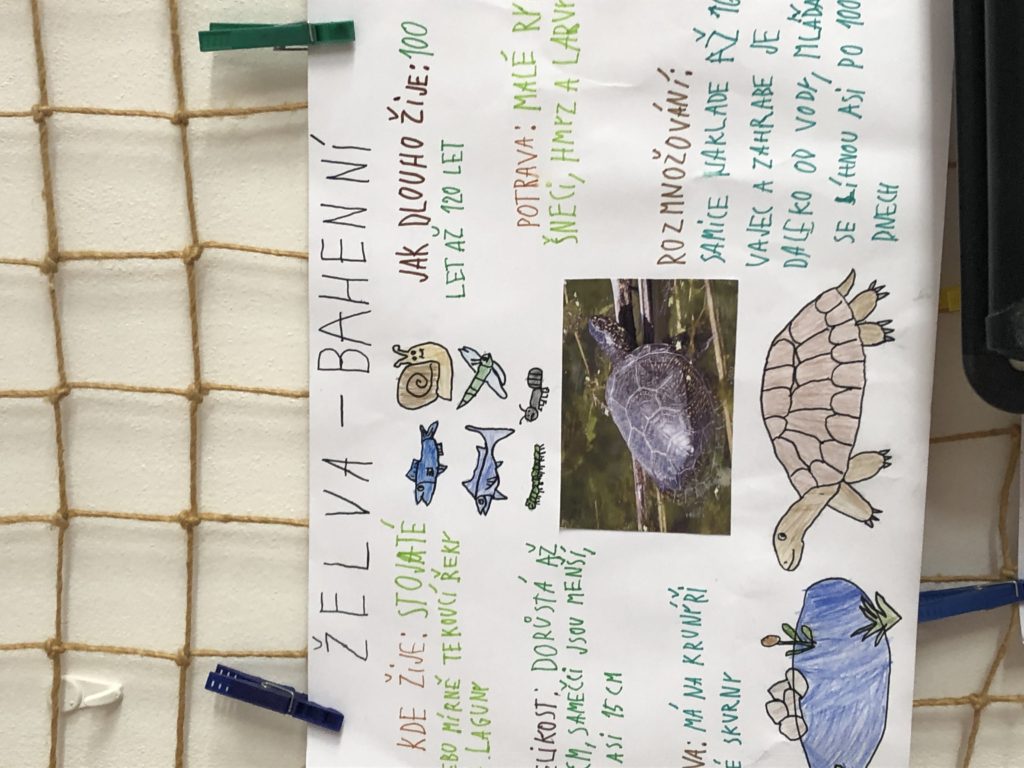 ŽELVA - BAHENNÍ
KDE ŽIJE: STOVATÉ
MÍRNĚ TEKOUCÍ ŘEKY
LAGUNY
DORŮSTÁ AŽ
SAMEČCI JSOU MENŠÍ,
ASI 15 CM
MÁ NA KRUNÝŘI
SKVRNY
JAK DLOUHO ŽIJE: 100
LET AŽ 120 LET
POTRAVA: MALÉ
ŠNECI, HMYZ A
ROZMNOŽOVÁNÍ:
SAMICE NAKLADE AŽ
VAJEC A ZAHRABE JE
DALEKO OD VODY,
SE LÍHNOU ASI PO 100
DNECH